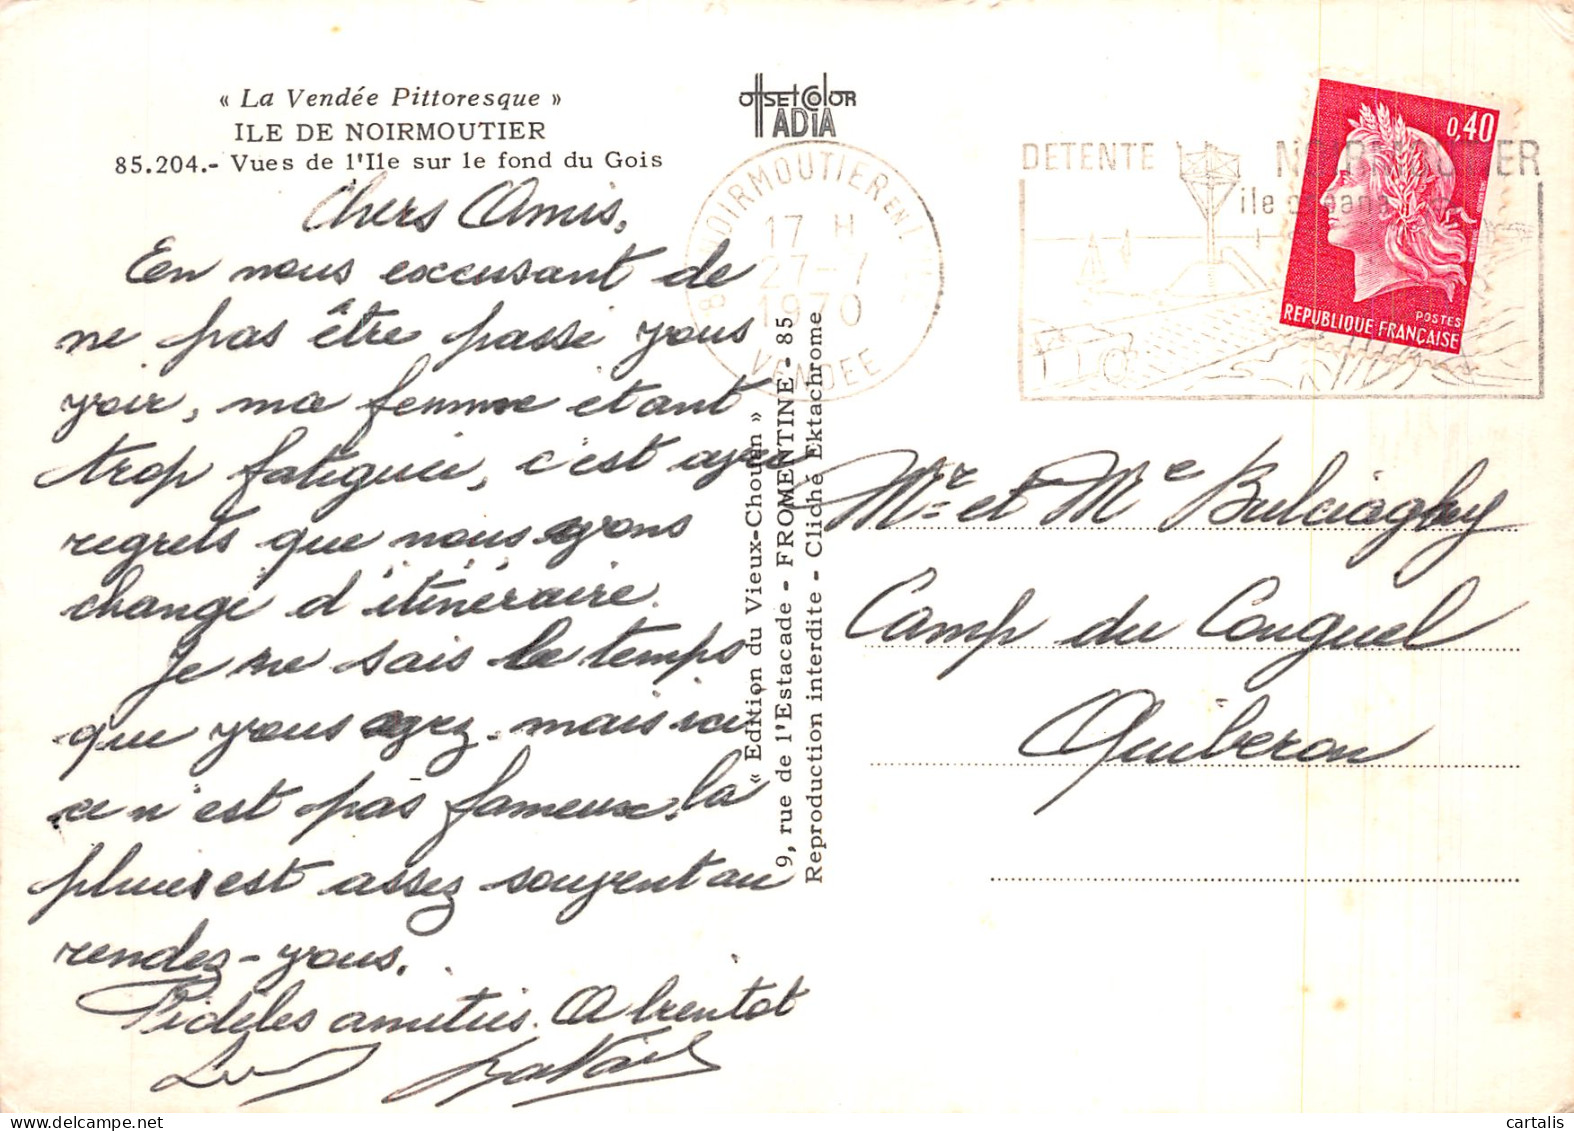 « La Vendée Pittoresque »
ILE DE NOIRMOUTIER
85.204.- Vues de l'Ile sur le fond du Gois
Chers Amis,
En nous excusant de
ne pas être passé vous
voir, ma femme étant
trop fatiguée, c'est avec
regrets que nous avons
changé d'itinéraire.
Je ne sais le temps
que vous avez, mais ici
ce n'est pas fameux, la
pluie est assez souvent au
rendez-vous.
Fidèles amitiés. A bientot
OffsetColor
IADIA
NOIRMOUTIER EN L'ILE
17 H
27-7
1970
VENDEE
« Edition du Vieux-Chouan »
9, rue de l'Estacade - FROMENTINE - 85
Reproduction interdite - Cliché Ektachrome
DETENTE
NOIRMOUTIER
ile
0,40
POSTES
REPUBLIQUE FRANÇAISE
Mr et Me
Camp du Conguel
Quiberon
cartalis